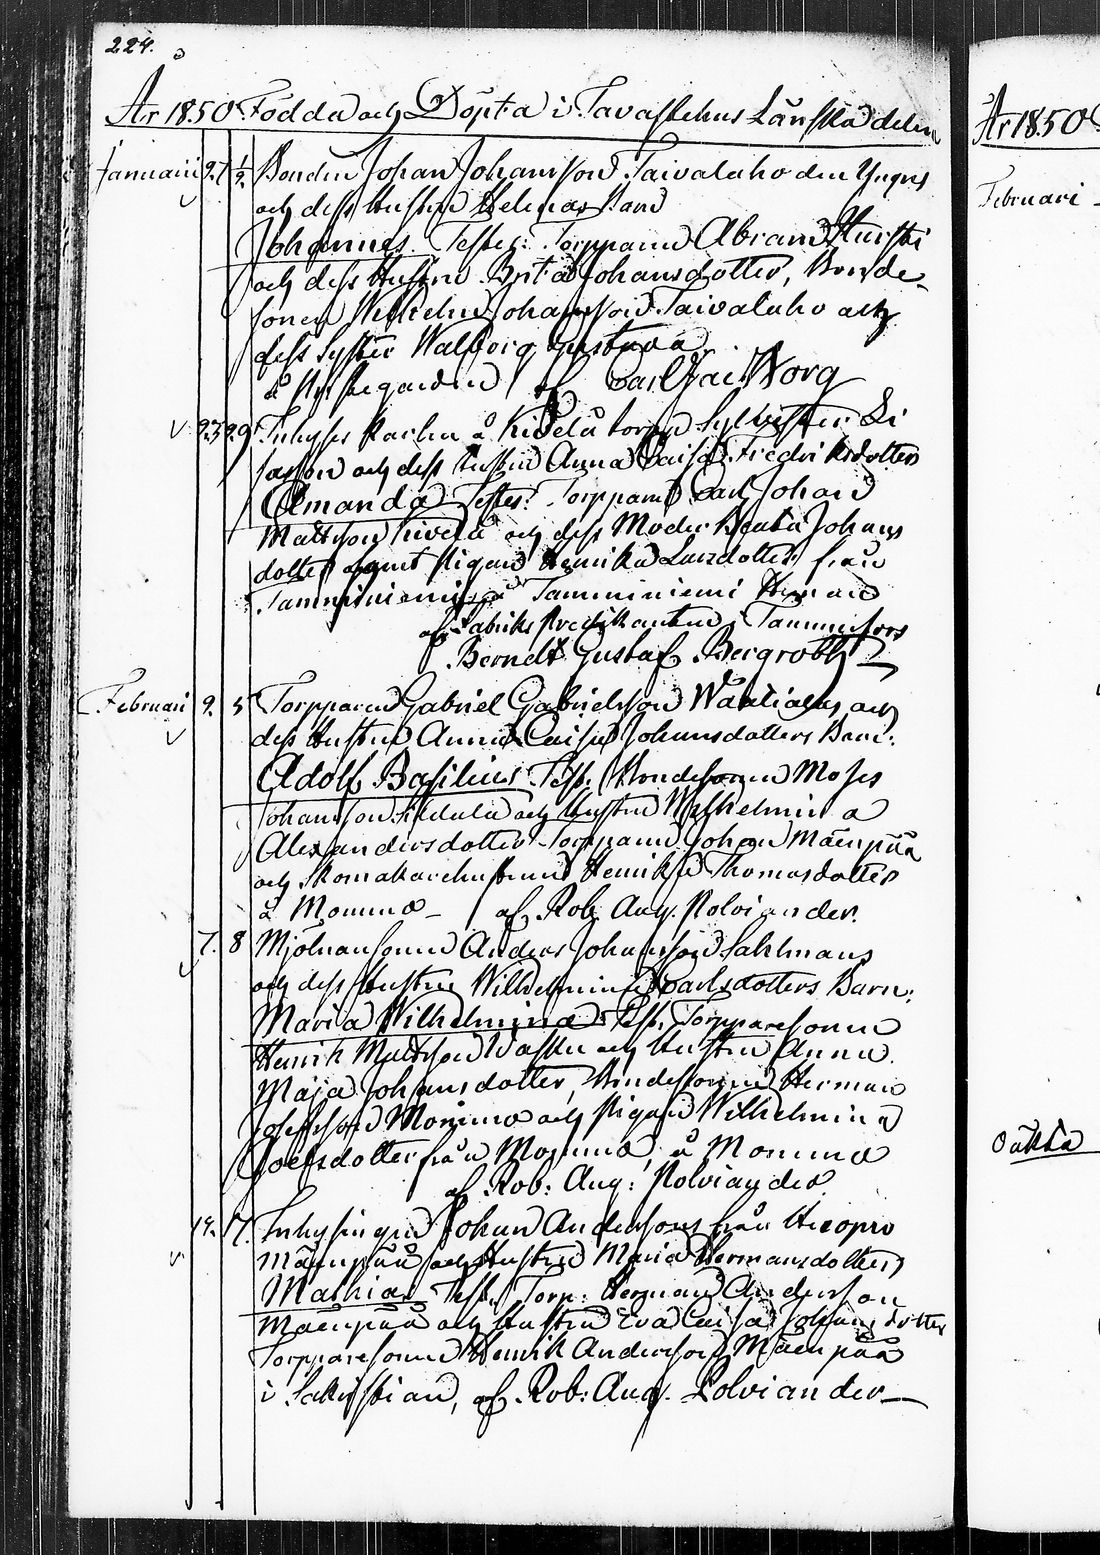 224.
År 1850 Födda och Döpta i Tavastehus Länska delen
År 1850
Januarii 27 1/2 Bonden Johan Johansson Taivalaho den Yngres
Februari
och dess Hustru Helenas Barn
Johannes. Testes: Torpparen Abram Hurstti
och dess Hustru Brita Johansdotter, Bonde-
sonen Wilhelm Johansson Taivalaho och
dess Syster Walborg Gustava
å af Carl Gust. Norg
23 29 Inhyses Karlen å Kivelä torp Sylvester
son och dess Hustru Anna Caisa Fredriksdotters
Amanda Testes: Torpparen Carl Johan
Mattsson Kivelä och dess Moder Beata Johans
dotter samt Pigan Henrika Larsdotter från
Tamminiemi å Tamminiemi Heman
af Fabriks Predikanten i Tammerfors
Berndt Gustaf Bergroth
Februari 2. 5 Torpparen Gabriel Gabrielsson Wäätiälas och
dess Hustru Anna Caisa Johansdotters Barn:
Adolf Basilius Test: Bondesonen Moses
Johansson och Hustru Wilhelmina
Alexandersdotter Torpparen Johan Mäenpää
och Skomakarehustrun Henrika Thomasdotter
å Mommo — af Rob. Aug. Polviander.
7. 8 Mjölnarsonen Anders Johansson Sahlmans
och dess Hustru Wilhelmina Carlsdotters Barn:
Maria Wilhelmina Test: Torpparesonen
Henrik Mattsson och Hustru Anna
Maja Johansdotter, Bondesonen Herman
Josefsson Mommo och Pigan Wilhelmina
Joefsdotter från Mommo, å Mommo
af Rob: Aug: Polviander
Oäkta
14. 17. Inhysingen Johan Anderssons från
Mäenpää och Hustru Maria Hermansdotters
Mathias Test: Torp: Herman Andersson
Mäenpää och Hustru Eva Caisa Johansdotter
Torpparesonen Henrik Andersson Mäenpää
i Sakristian, af Rob: Aug. Polviander—